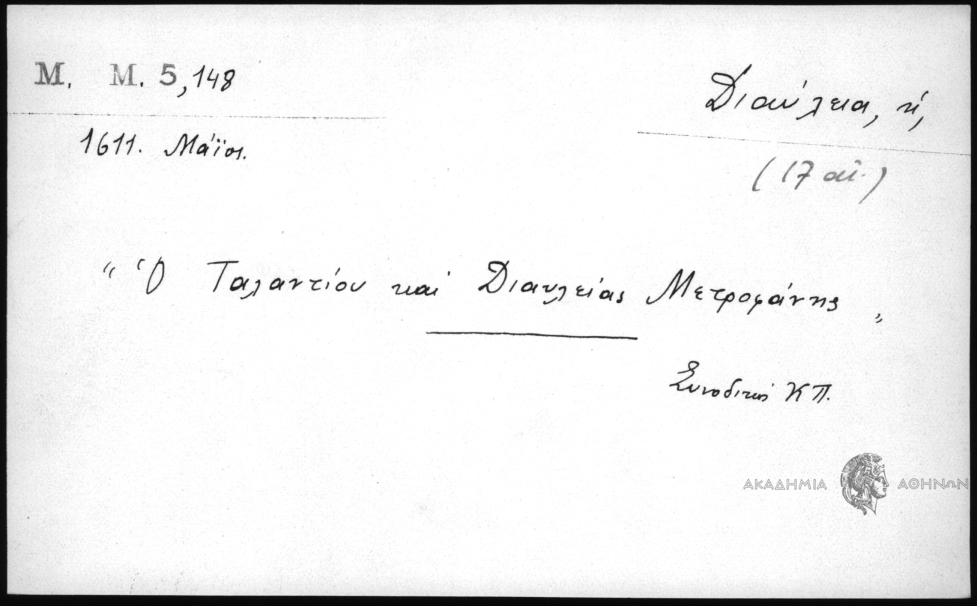 Μ. Μ. 5,148
Διαύλεια, ἡ,
1611. Μάϊος.
(17 αἰ.)
" Ὁ Ταλαντίου καὶ Διαυλείας Μετροφάνης "
Συνοδικὸς ΚΠ.
ΑΚΑΔΗΜΙΑ ΑΘΗΝΩΝ